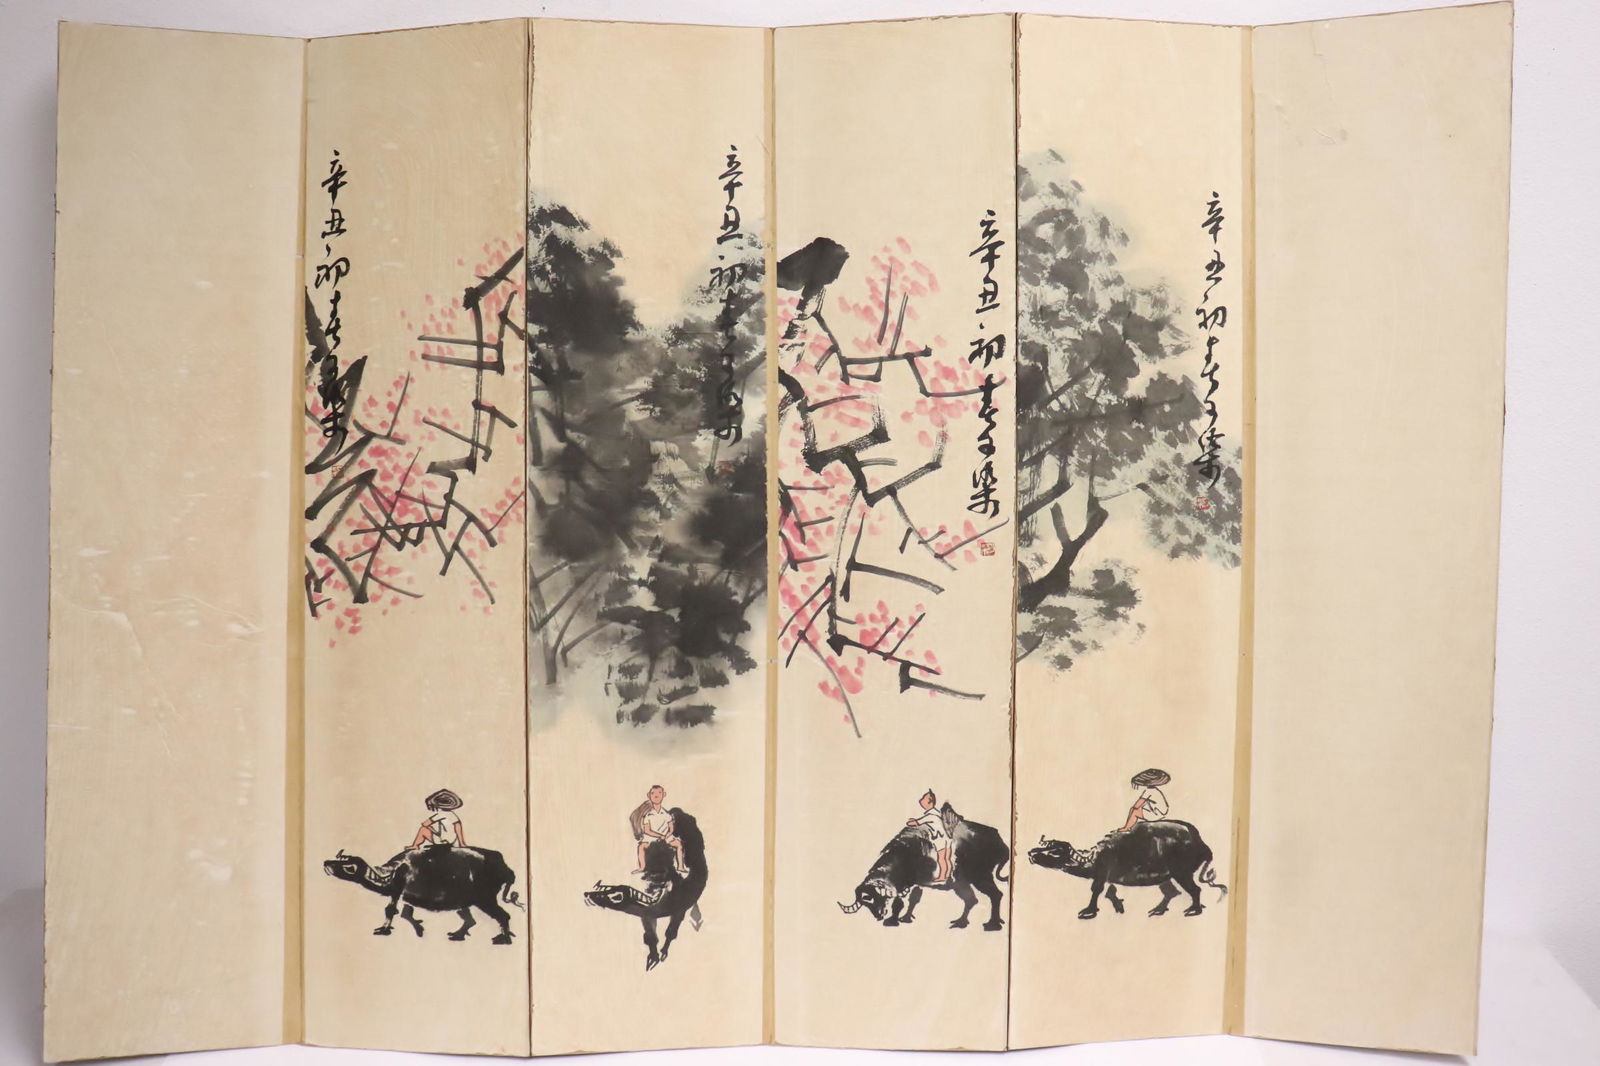 辛丑初春可染
辛丑初春可染
辛丑初春可染
辛丑初春可染